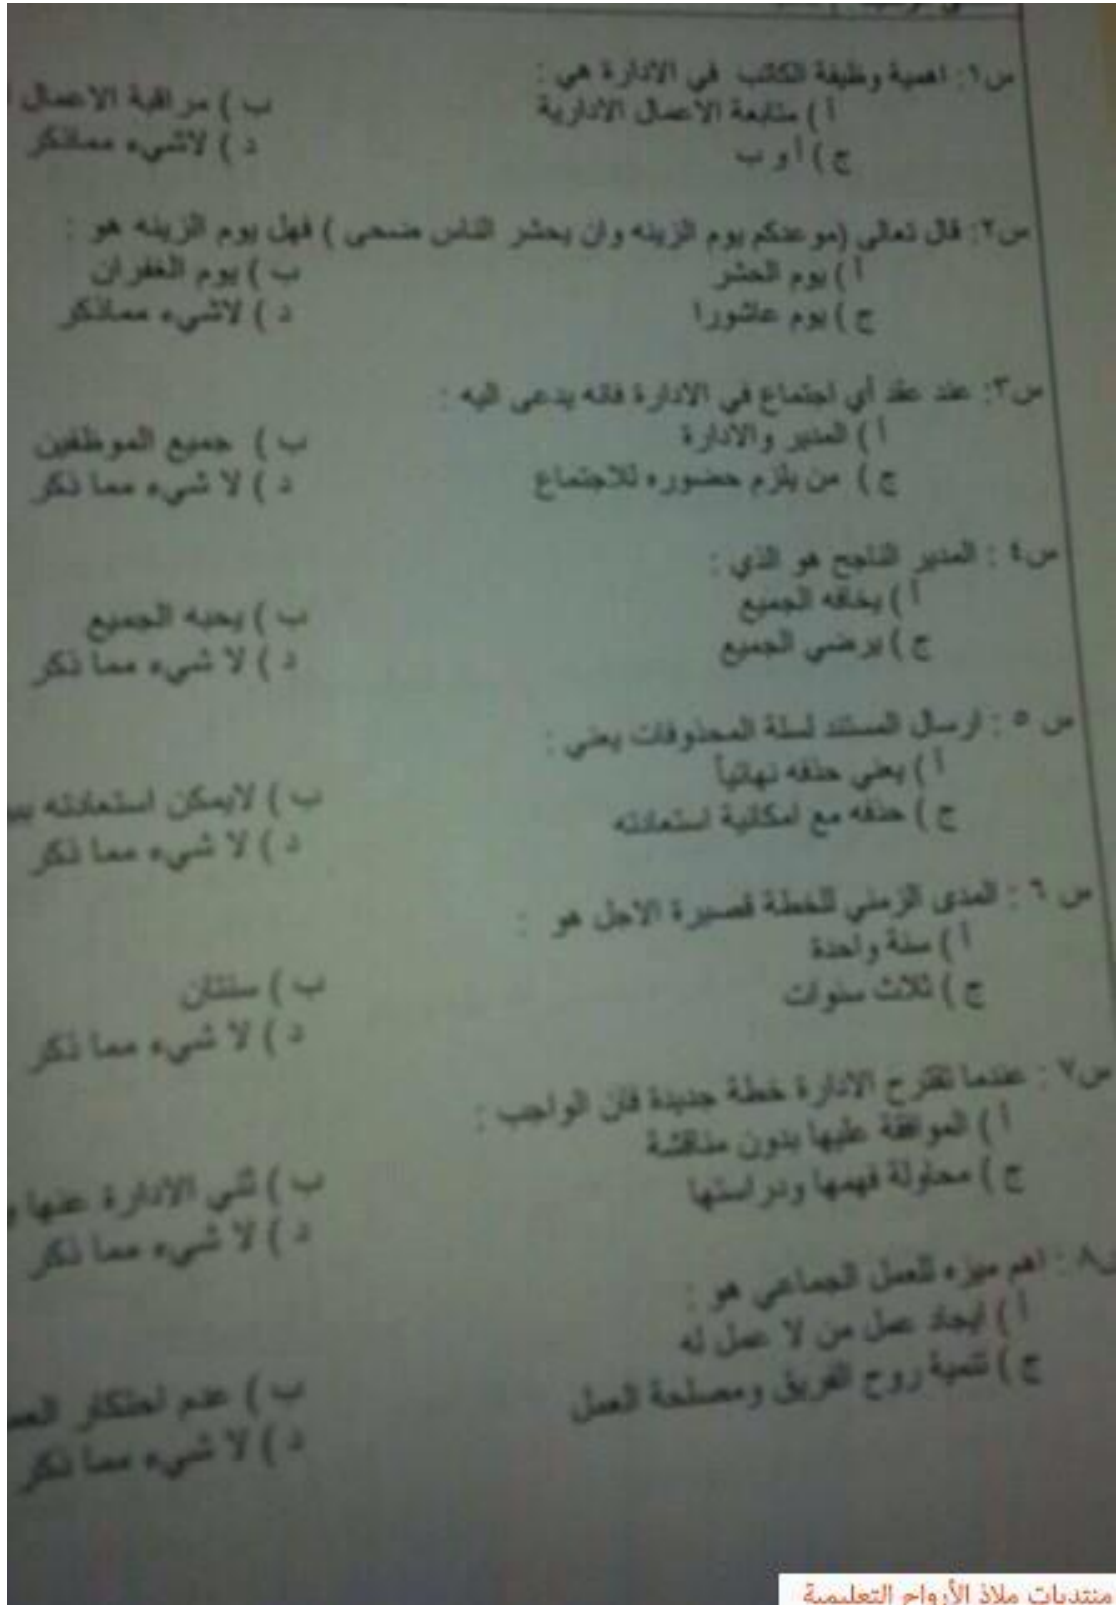 س١: اهمية وظيفة الكاتب في الادارة هي :
أ ) متابعة الاعمال الادارية ب ) مراقبة الاعمال
ج ) أ و ب د ) لاشيء مماذكر
س٢: قال تعالى (موعدكم يوم الزينه وان يحشر الناس ضحى ) فهل يوم الزينه هو :
أ ) يوم الحشر ب ) يوم الغفران
ج ) يوم عاشورا د ) لاشيء مماذكر
س٣: عند عقد أي اجتماع في الادارة فانه يدعى اليه :
أ ) المدير والادارة ب ) جميع الموظفين
ج ) من يلزم حضوره للاجتماع د ) لا شيء مما ذكر
س٤ : المدير الناجح هو الذي :
أ ) يخافه الجميع ب ) يحبه الجميع
ج ) يرضي الجميع د ) لا شيء مما ذكر
س ٥ : ارسال المستند لسلة المحذوفات يعني :
أ ) يعني حذفه نهائياً ب ) لايمكن استعادته
ج ) حذفه مع امكانية استعادته د ) لا شيء مما ذكر
س ٦ : المدى الزمني للخطة قصيرة الاجل هو :
أ ) سنة واحدة ب ) سنتان
ج ) ثلاث سنوات د ) لا شيء مما ذكر
س٧ : عندما تقترح الادارة خطة جديدة فان الواجب :
أ ) الموافقة عليها بدون مناقشة ب ) ثني الادارة عنها
ج ) محاولة فهمها ودراستها د ) لا شيء مما ذكر
س٨ : اهم ميزه للعمل الجماعي هو :
أ ) ايجاد عمل من لا عمل له ب ) عدم احتكار
ج ) تنمية روح الفريق ومصلحة العمل د ) لا شيء مما ذكر
منتديات ملاذ الأرواح التعليمية